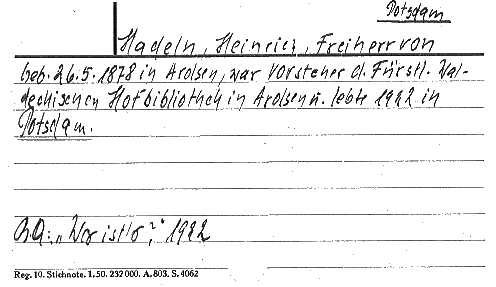 Potsdam
Hadeln, Heinrich, Freiherr von
Geb. 26.5.1878 in Arolsen, war Vorsteher d. Fürstl. Wal-
deckischen Hofbibliothek in Arolsen u. lebte 1922 in
Potsdam.
"Wer ist's?" 1922
Reg. 10. Stichnote. 1. 50. 232 000. A. 803. S. 4062